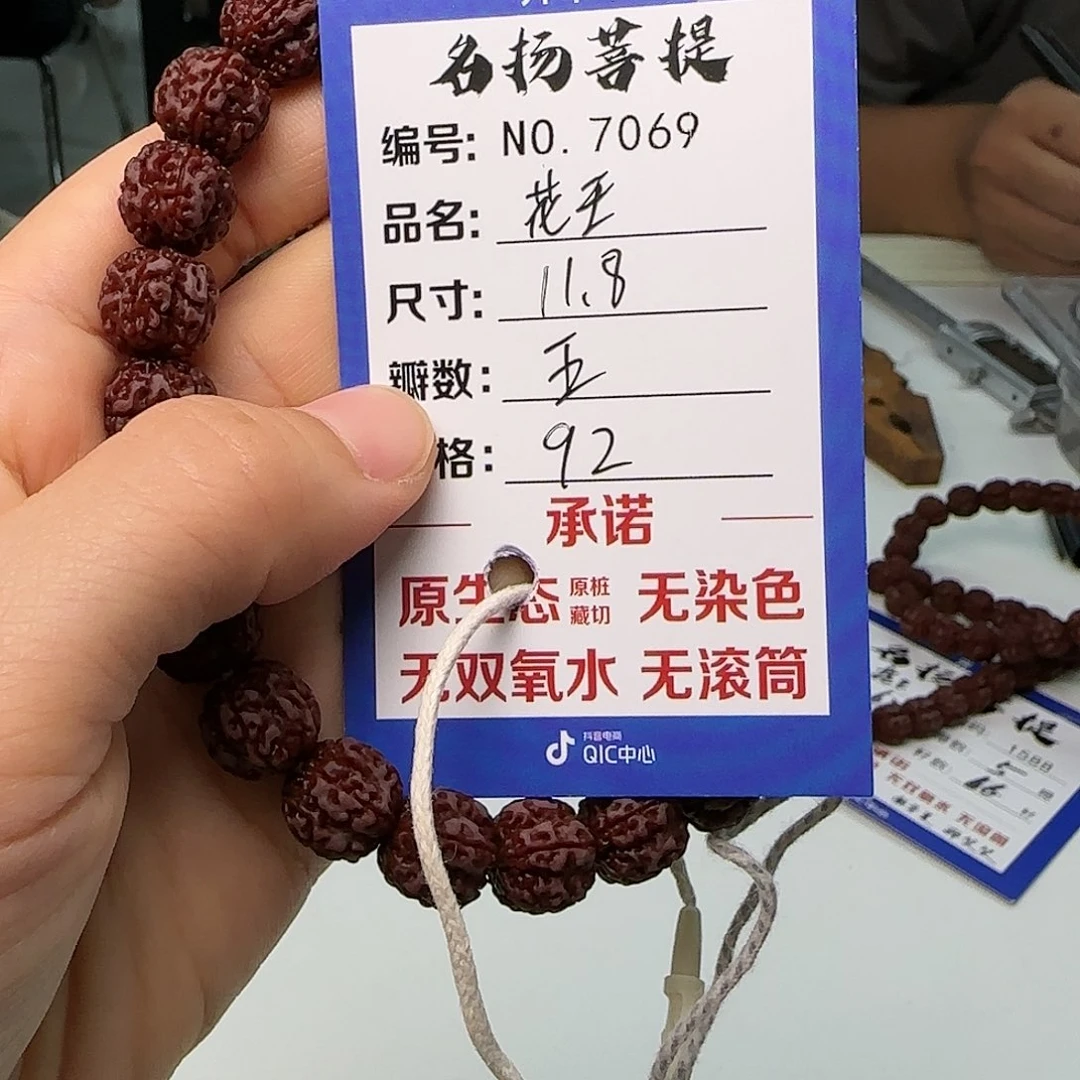 名扬菩提
编号: NO. 7069
品名: 花王
尺寸: 11.8
瓣数: 五
格: 92
承诺
原生态 原桩藏切 无染色
无双氧水 无滚筒
抖音电商
QIC中心
名扬 提
1588
无双氧水 无滚筒